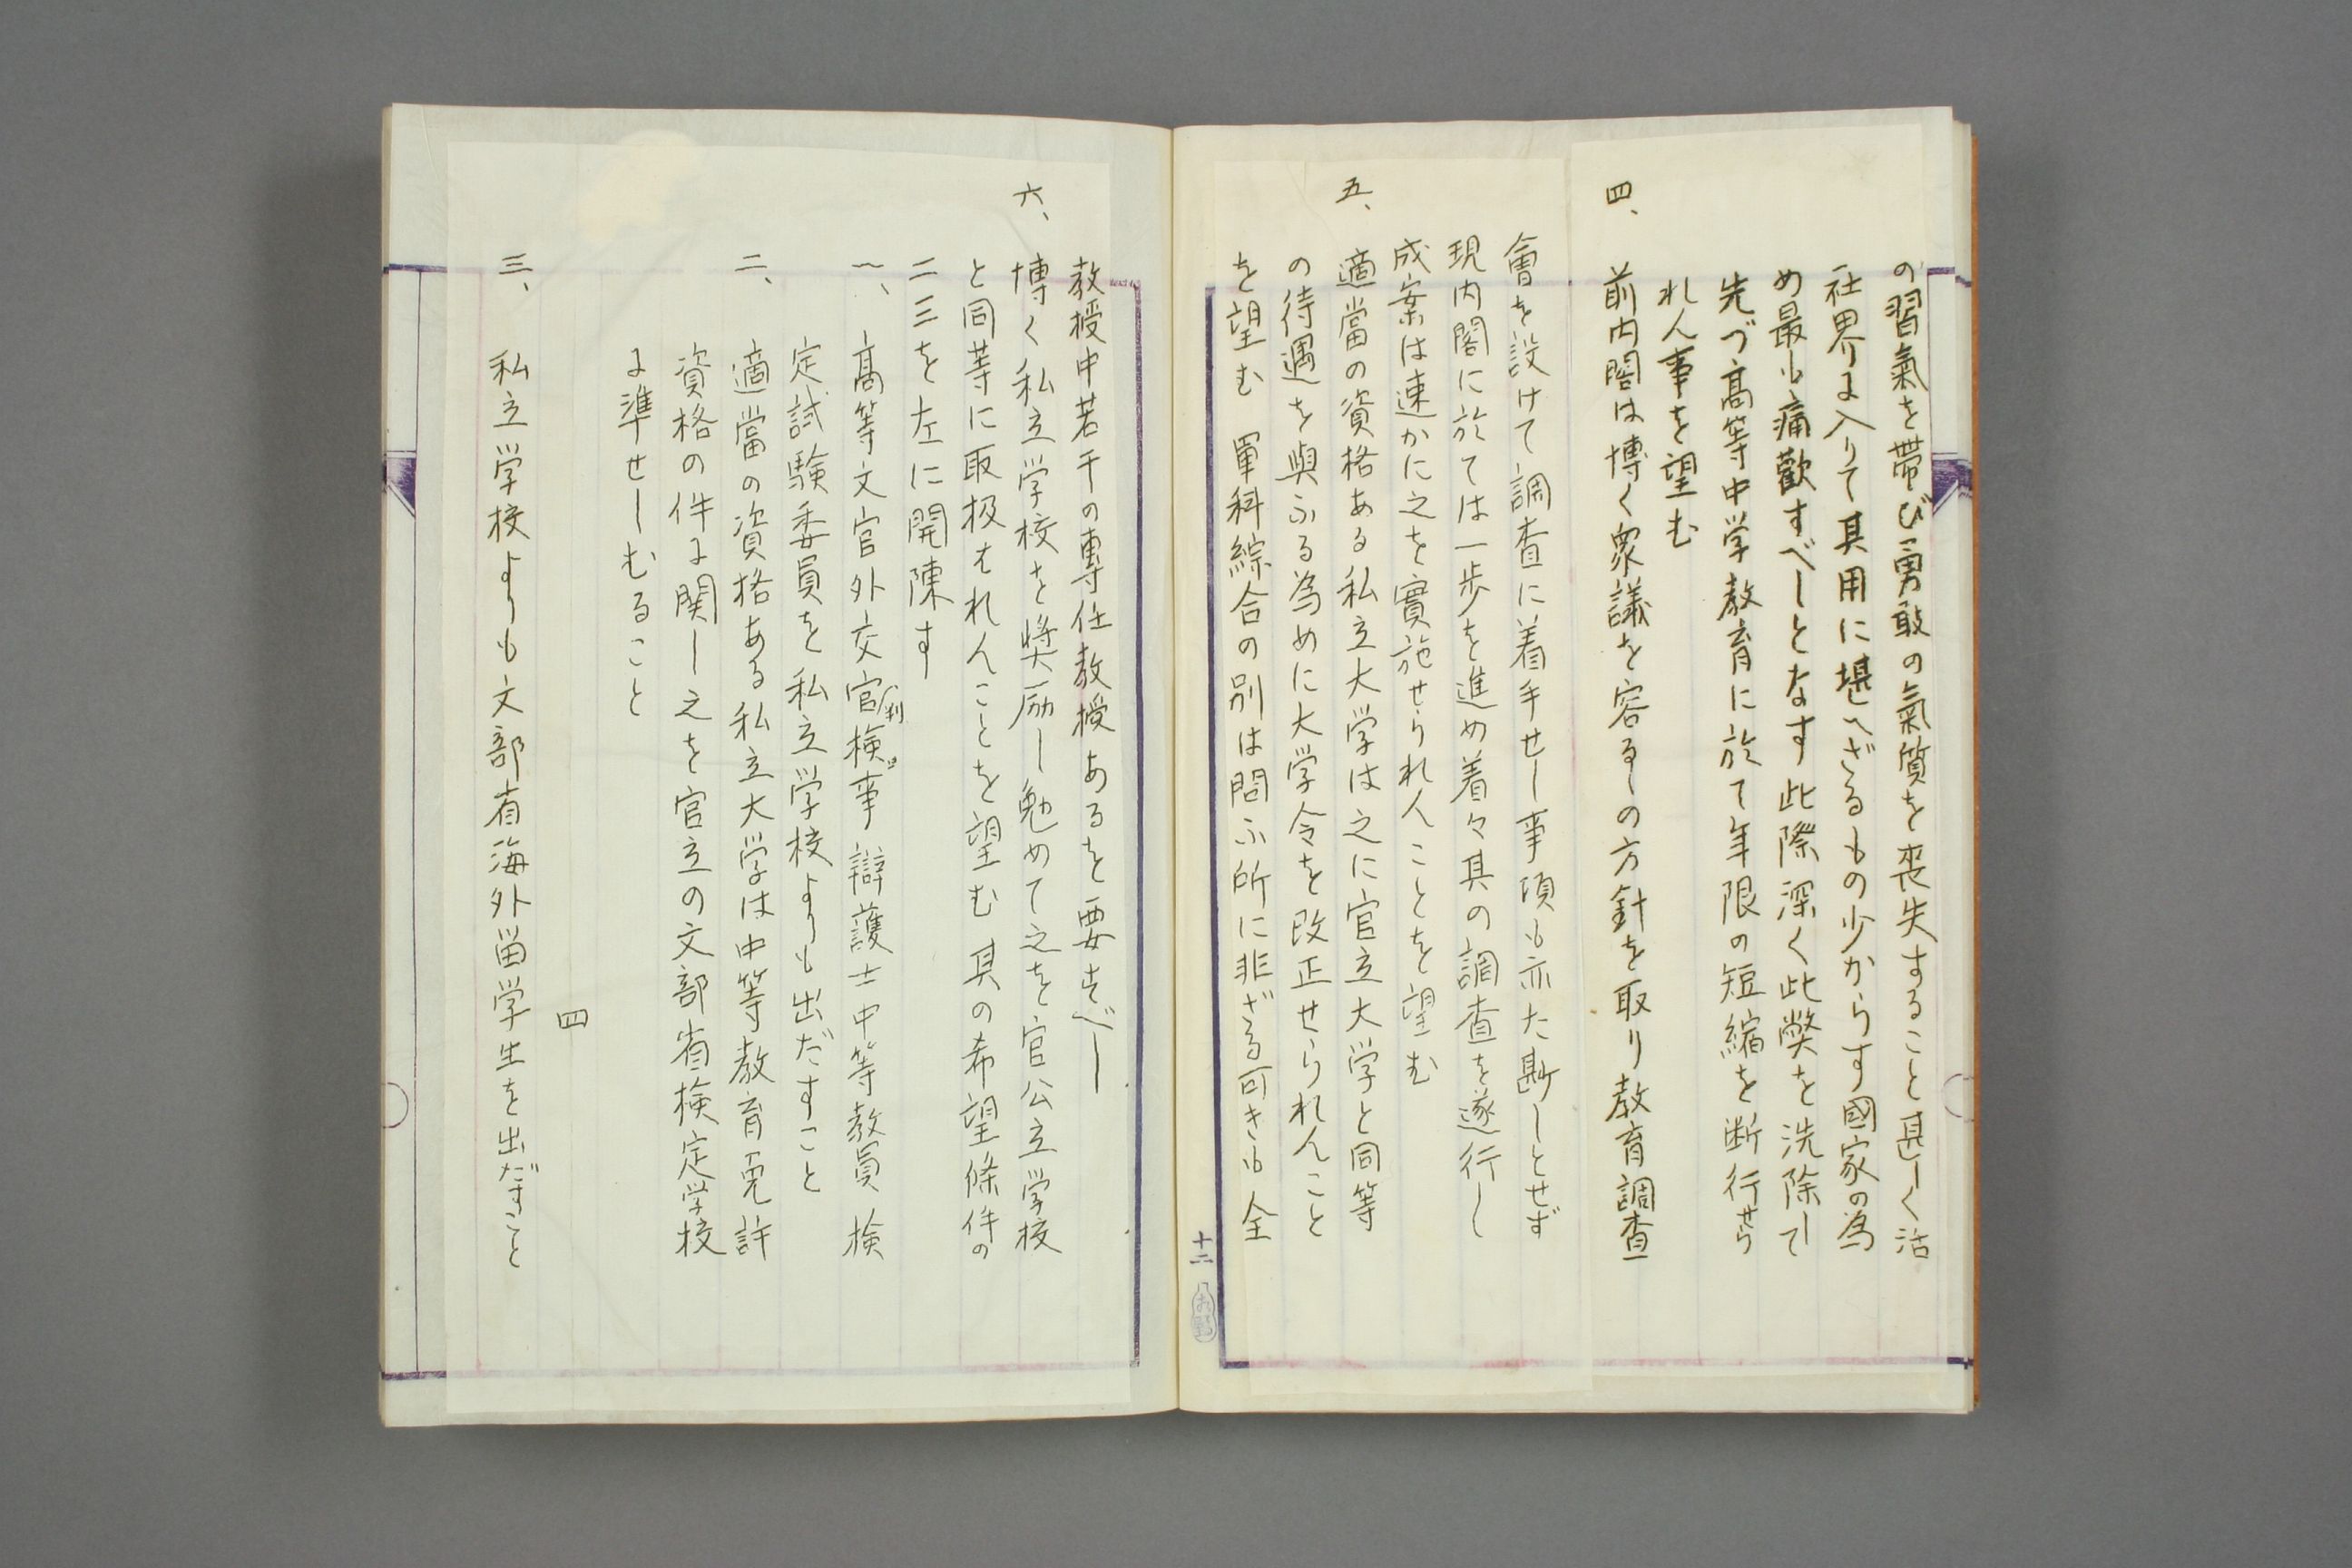 の習氣を帯び勇敢の氣質を喪失すること甚しく活
社界に入りて其用に堪へざるもの少からす國家の為
め最も痛歎すべしとなす此際深く此弊を洗除して
先づ高等中学教育に於て年限の短縮を断行せら
れん事を望む
四、前内閣は博く衆議を容るゝの方針を取り教育調査
會を設けて調査に着手せし事項も亦た尠しとせず
現内閣に於ては一歩を進め着々其の調査を遂行し
成案は速かに之を實施せられんことを望む
五、適當の資格ある私立大学は之に官立大学と同等
の待遇を與ふる為めに大学令を改正せられんこと
を望む 單科綜合の別は問ふ所に非ざる可きも全
十二
教授中若干の専任教授あるを要すべし
六、博く私立学校を奨励し勉めて之を官公立学校
と同等に取扱はれんことを望む 其の希望條件の
二三を左に開陳す
一、高等文官外交官判検事辯護士中等教員検
定試験委員を私立学校よりも出だすこと
二、適當の資格ある私立大学は中等教育免許
資格の件に関し之を官立の文部省検定学校
に準せしむること
四
三、私立学校よりも文部省海外留学生を出だすこと